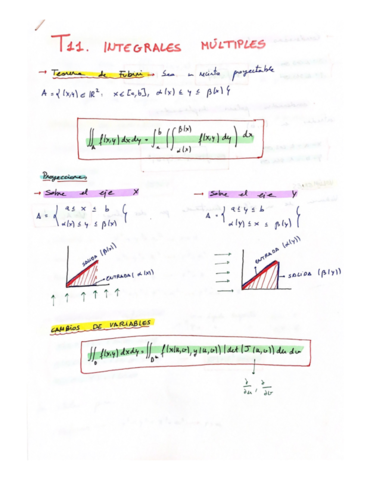 T11. INTEGRALES MÚLTIPLES
→ Teorema de Fubini → Sea un recinto proyectable
A = {(x,y) ∈ ℝ²: x ∈ [a,b], α(x) ≤ y ≤ β(x)}
∬_A f(x,y) dx dy = ∫_a^b (∫_{α(x)}^{β(x)} f(x,y) dy) dx
Proyecciones
→ Sobre el eje X
A = { a ≤ x ≤ b
α(x) ≤ y ≤ β(x) }
SALIDA (β(x))
ENTRADA (α(x))
→ Sobre el eje Y
A = { a ≤ y ≤ b
α(y) ≤ x ≤ β(y) }
ENTRADA (α(y))
SALIDA (β(y))
CAMBIOS DE VARIABLES
∬_D f(x,y) dx dy = ∬_D* f(x(u,v), y(u,v)) |det (J(u,v))| du dv
∂/∂u, ∂/∂v